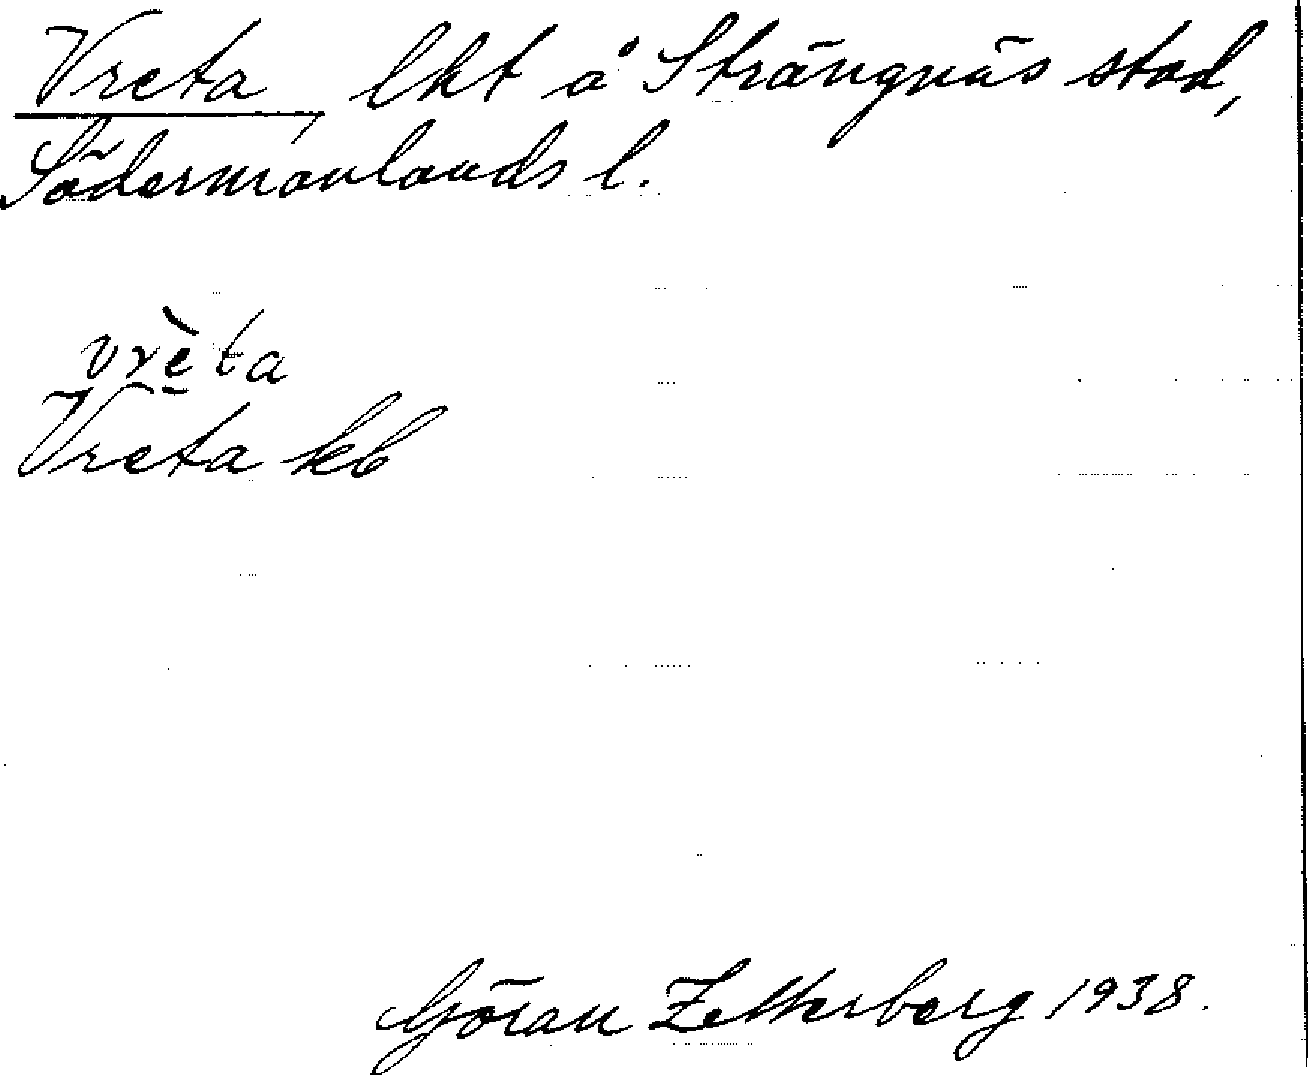 Vreta, lht å Strängnäs stad,
Södermanlands l.
vrèta
Vreta kb
Göran Zetterberg 1938.